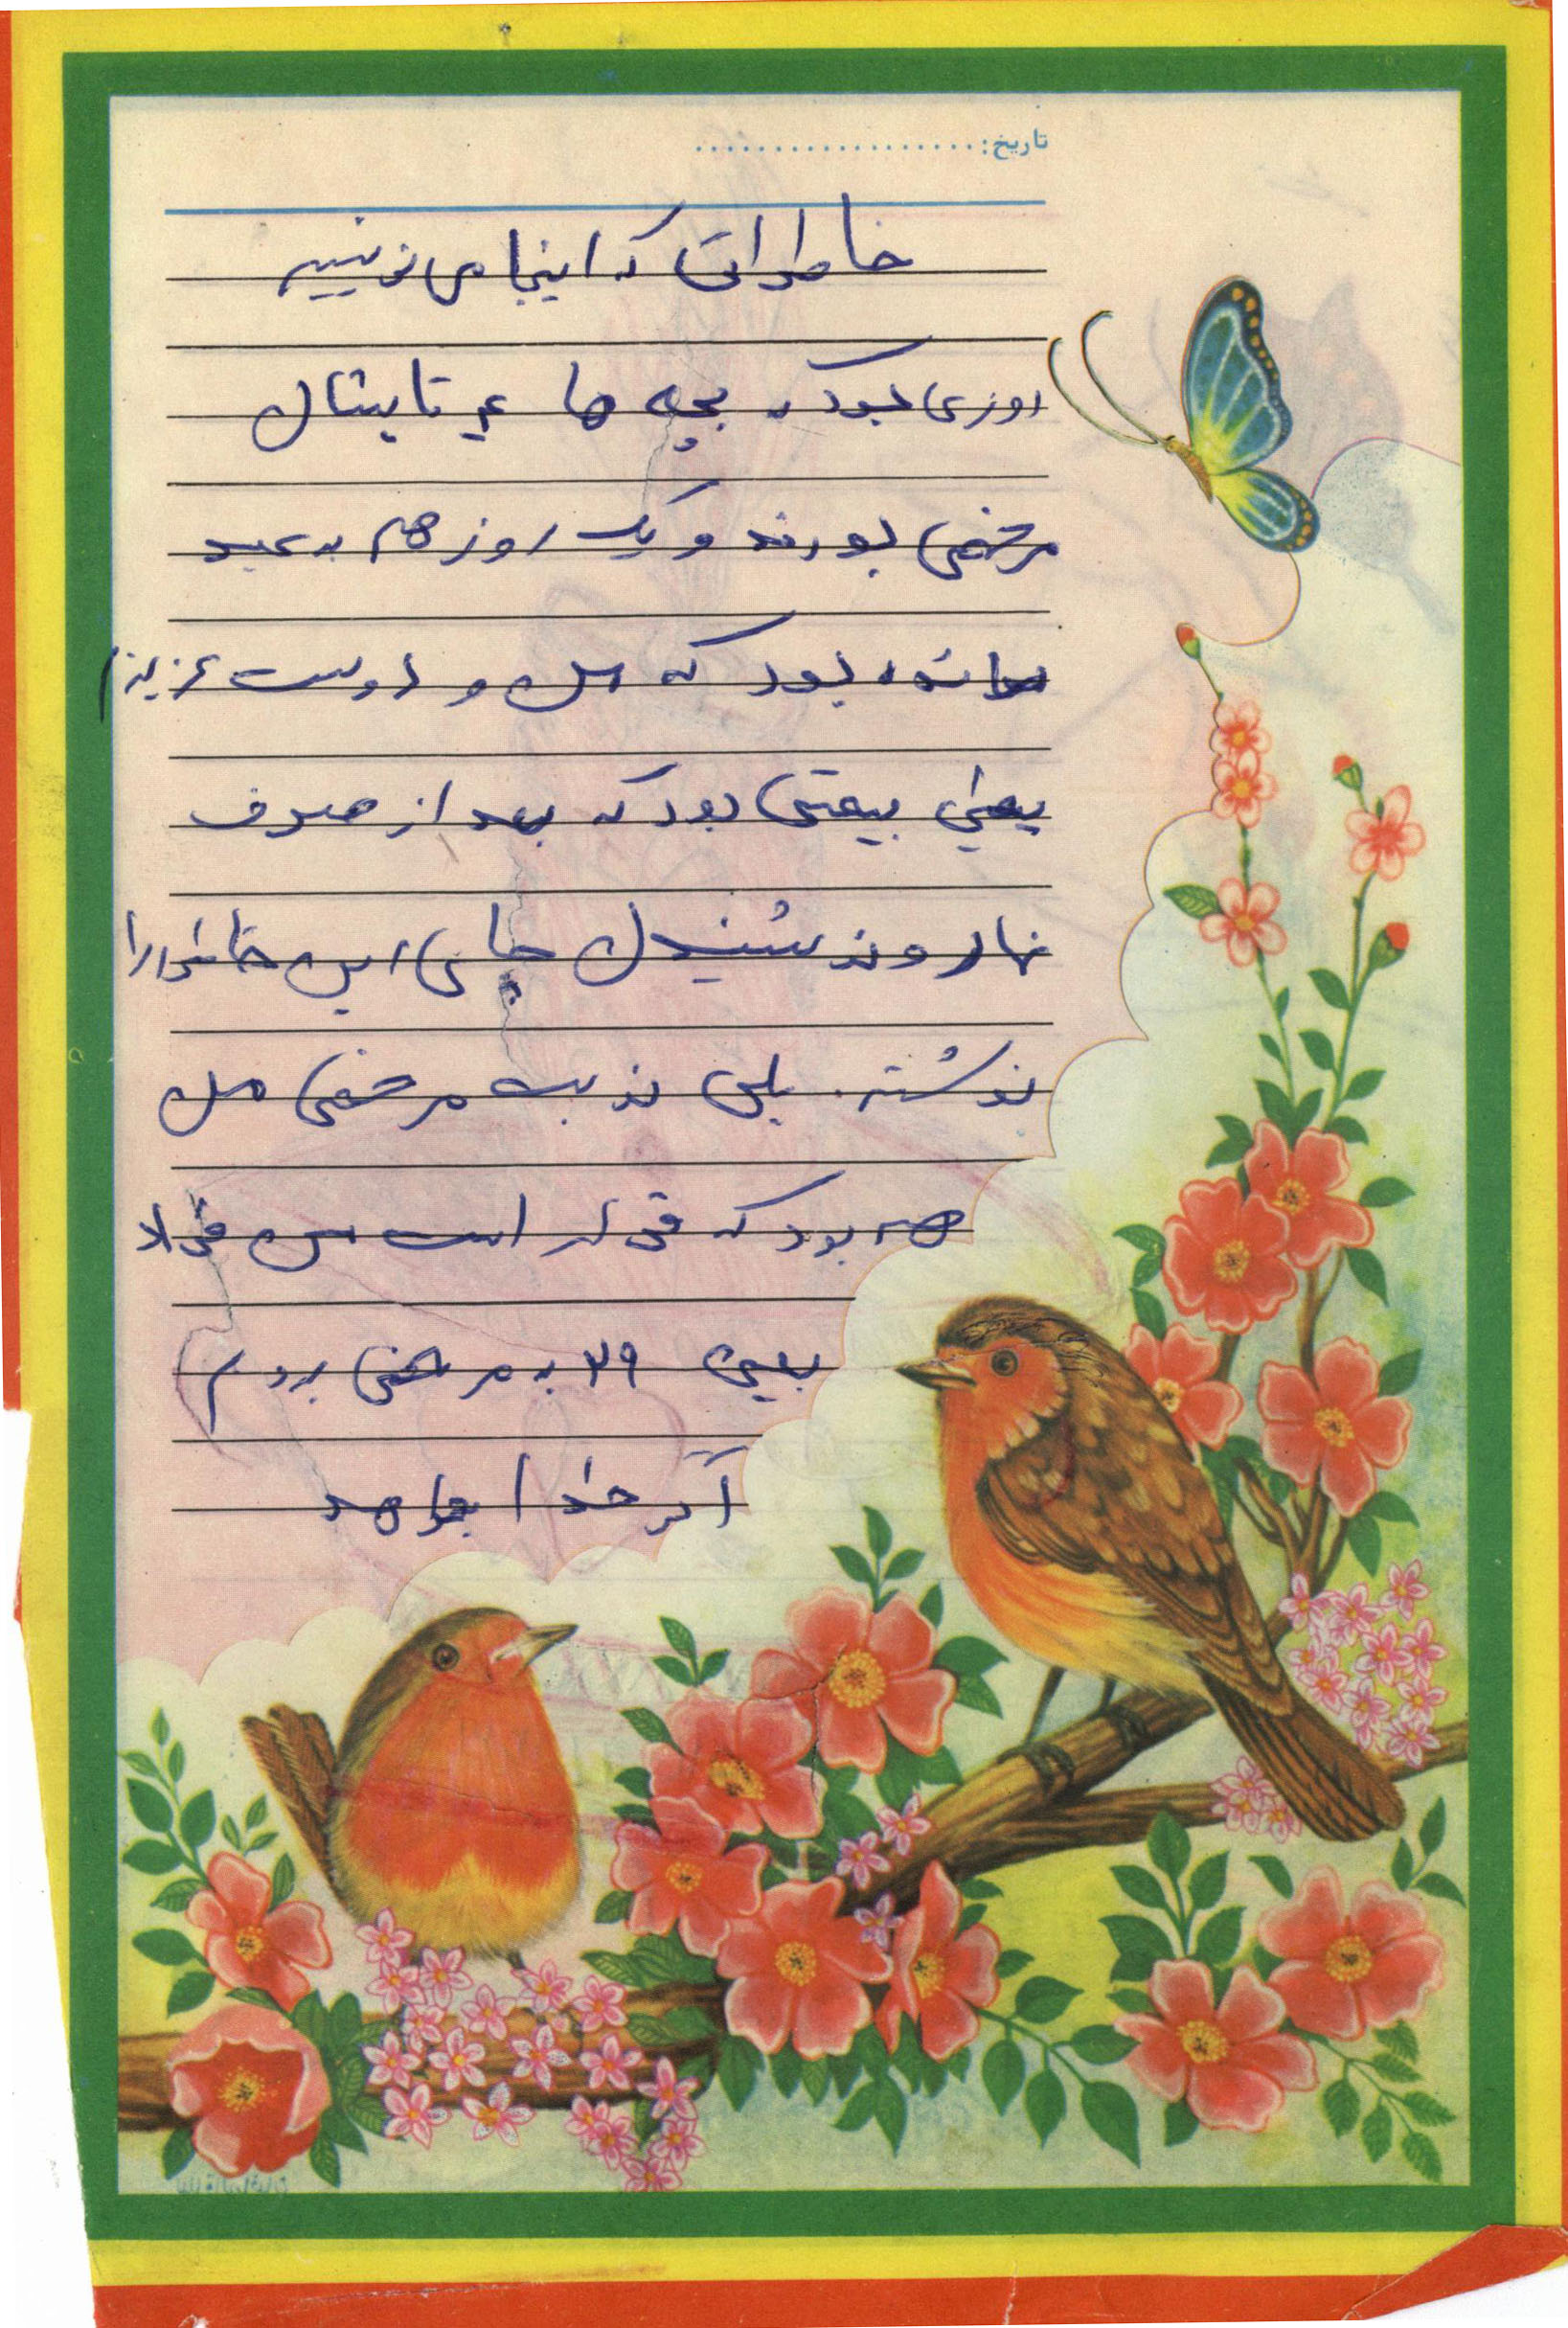 تاریخ: ...................
خاطراتی که اینجا می نویسیم
روزی بود که بچه ها
مرخصی بودند و یک روز هم به عید
مانده بود که من و دوست عزیزم
یعنی بیعتی بود که بعد از صرف
نهار و نوشیدن چای این خاطره را
نوشتم. بلی نوبت مرخصی من
هم بود که قرار است من فردا
یعنی ۲۹ به مرخصی بروم
اگر خدا بخواهد